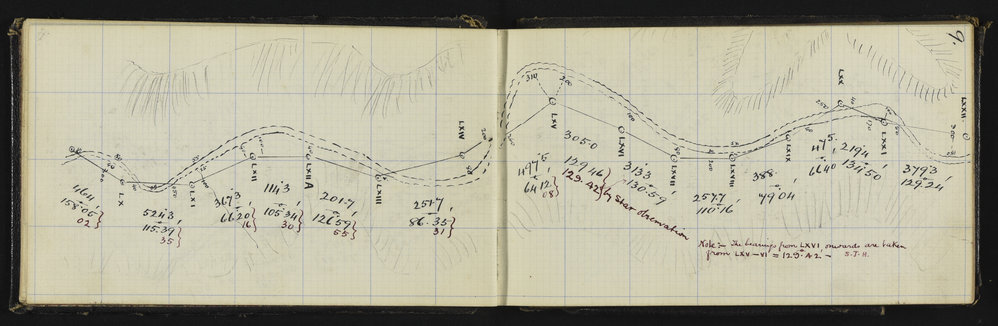 9.
LX
LXI
LXII
LXII A
LXIII
LXIV
LXV
LXVI
LXVII
LXVIII
LXIX
LXX
LXXI
LXXII
158.05
02
524.3
115.39
35
367.3
66.20
16
114.3
105.34
30
201.7
126.59
55
251.7
86.35
31
497.5
64.12
08
305.0
129.46
129.42 by Star observation
313.3
130.59
257.7
110.16
388.
79.04
475.
66.40
219.4
134.50
379.3
129.24
310
200
Note :- The bearings from LXVI onwards are taken
from LXV - VI = 129.42. - S.J.H.